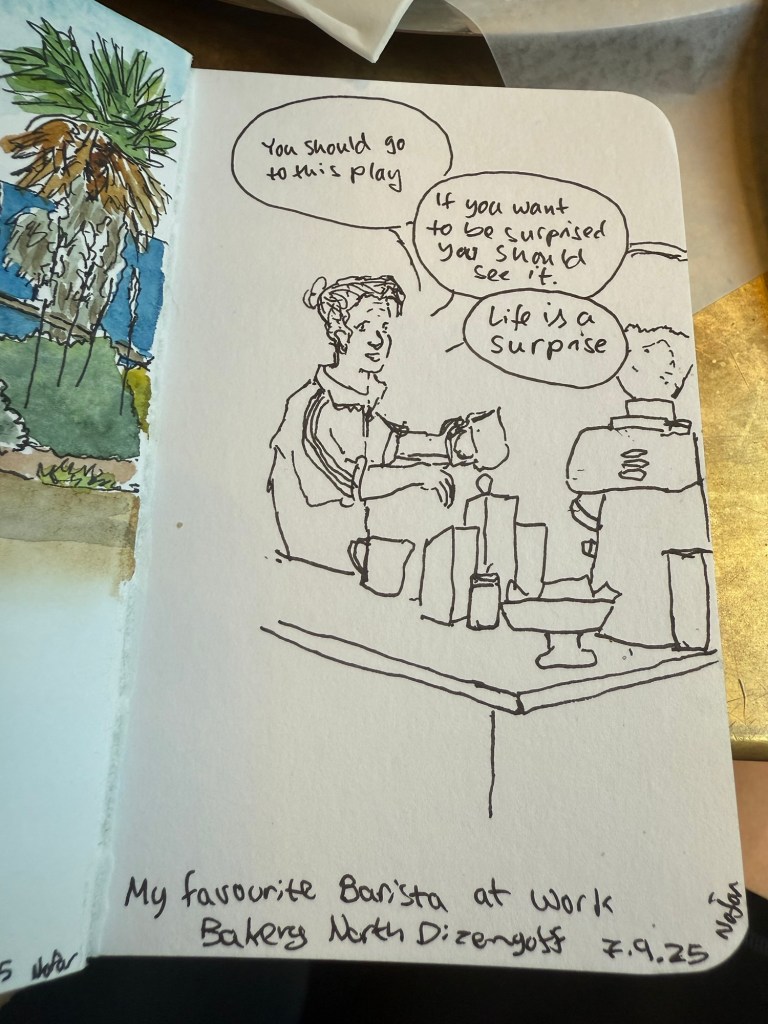 You should go
to this play
If you want
to be surprised
you should
see it.
Life is a
surprise
My favourite Barista at work
Bakery North Dizengoff 7.9.25
Nofar
5 Nofar